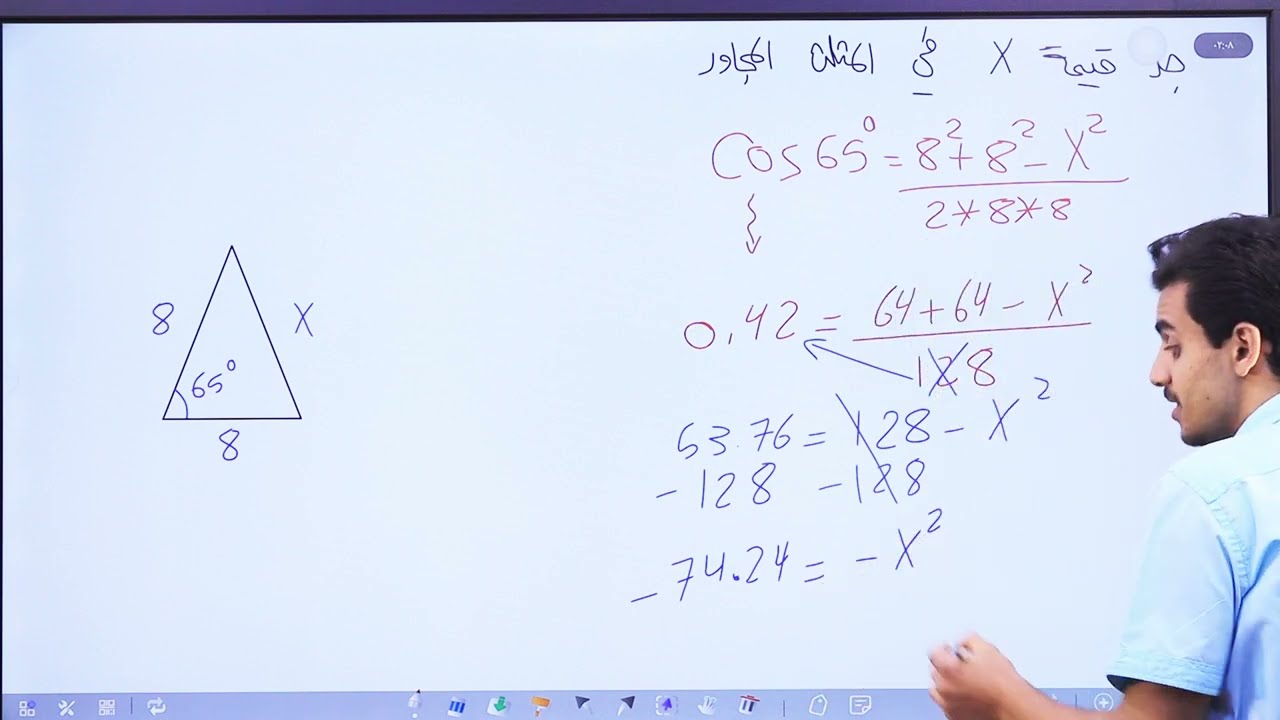 ٠٢:٠٨
جد قيمة X في المثلث المجاور
Cos 65° = 8² + 8² - X² / 2*8*8
0.42 = 64 + 64 - X² / 128
53.76 = 128 - X²
-128 -128
-74.24 = -X²
8
X
65°
8